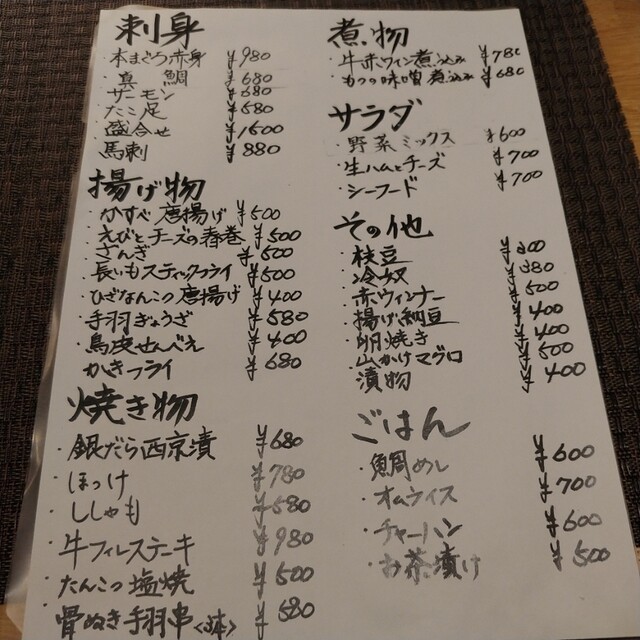 刺身
・本まぐろ赤身 ¥980
・真鯛 ¥680
・サーモン ¥680
・たこ足 ¥580
・盛合せ ¥1500
・馬刺 ¥880
揚げ物
・かすべ唐揚げ ¥500
・えびとチーズの春巻 ¥500
・ざんぎ ¥500
・長いもスティックフライ ¥500
・ひざなんこつ唐揚げ ¥400
・手羽ぎょうざ ¥580
・鳥皮せんべえ ¥400
かきフライ ¥680
焼き物
・銀だら西京漬 ¥680
・ほっけ ¥780
・ししゃも ¥580
・牛フィレステーキ ¥980
・たんこつ塩焼 ¥500
・骨ぬき手羽串<3本> ¥680
煮物
・牛赤ワイン煮込み ¥780
・もつの味噌煮込み ¥680
サラダ
・野菜ミックス ¥600
・生ハムとチーズ ¥700
・シーフード ¥700
その他
・枝豆 ¥300
・冷奴 ¥380
・赤ウィンナー ¥500
・揚げ納豆 ¥400
・卵焼き ¥400
・山かけマグロ ¥500
漬物 ¥400
ごはん
・鯛めし ¥600
・オムライス ¥700
・チャーハン ¥600
・お茶漬け ¥500